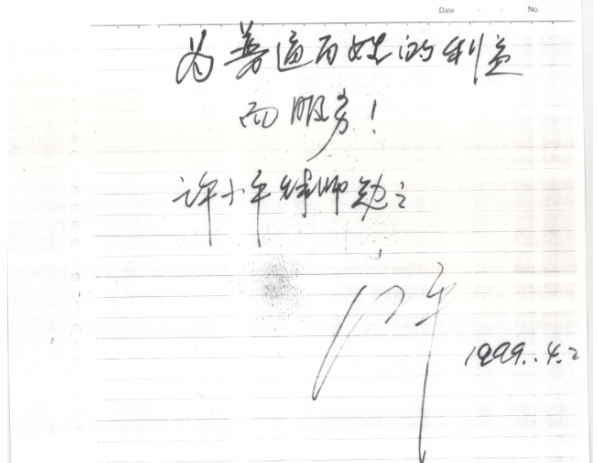 Date . . No.
为普通百姓的利益
而服务！
许小平律师勉之
1999.4.2